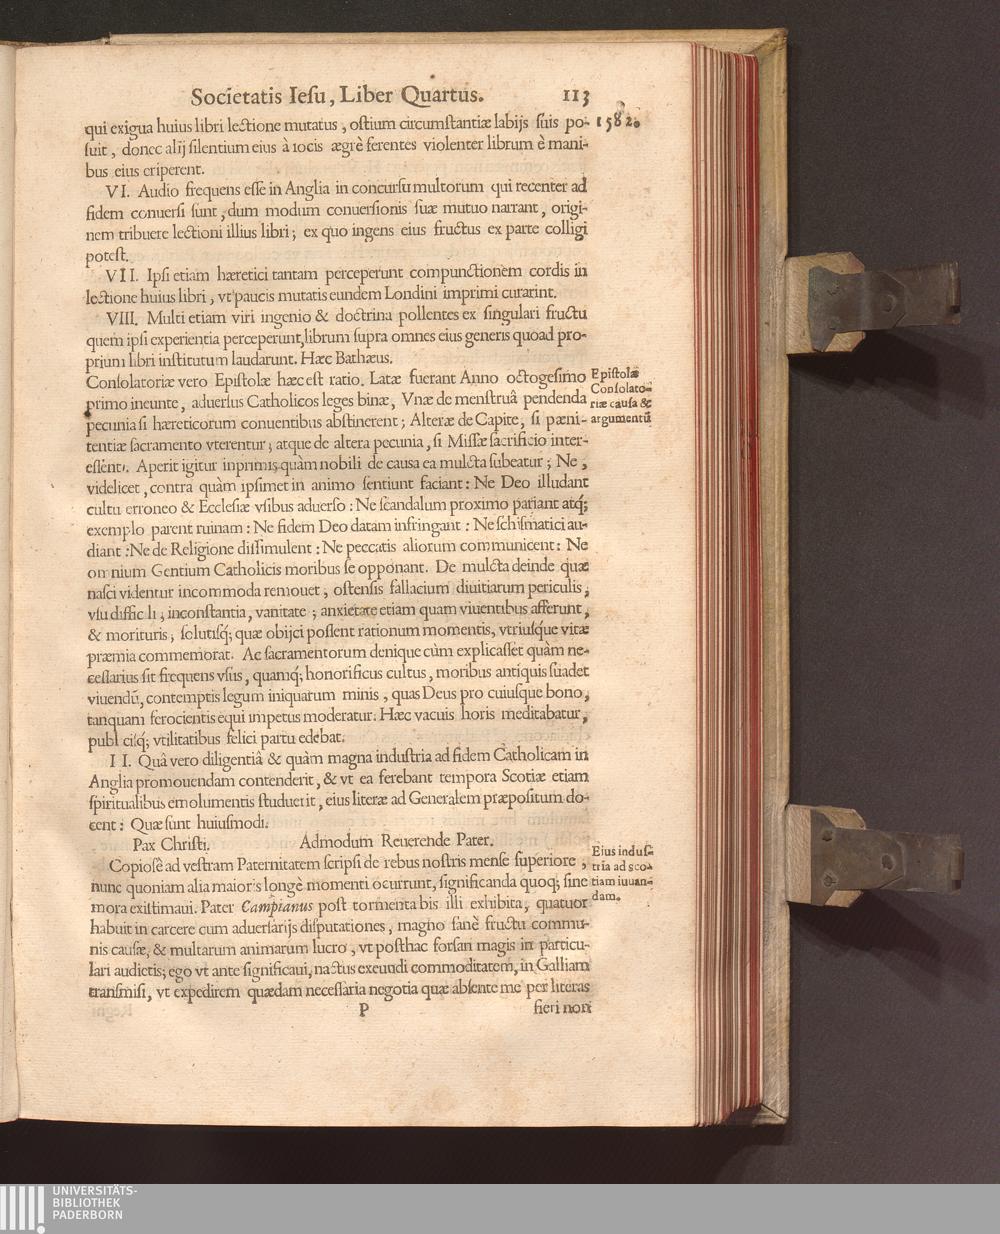 Societatis Iesu, Liber Quartus. 113
1582.
qui exigua huius libri lectione mutatus, ostium circumstantiæ labijs suis po-
suit, donec alij silentium eius à iocis ægrè ferentes violenter librum è mani-
bus eius eriperent.
VI. Audio frequens esse in Anglia in concursu multorum qui recenter ad
fidem conuersi sunt, dum modum conuersionis suæ mutuo narrant, origi-
nem tribuere lectioni illius libri; ex quo ingens eius fructus ex parte colligi
potest.
VII. Ipsi etiam hæretici tantam perceperunt compunctionem cordis in
lectione huius libri, vt paucis mutatis eundem Londini imprimi curarint.
VIII. Multi etiam viri ingenio & doctrina pollentes ex singulari fructu
quem ipsi experientia perceperunt, librum supra omnes eius generis quoad pro-
prium libri institutum laudarunt. Hæc Bathæus.
Consolatoriæ vero Epistolæ hæc est ratio. Latæ fuerant Anno octogesimo
primo ineunte, aduersus Catholicos leges binæ, Vnæ de menstruâ pendenda
pecunia si hæreticorum conuentibus abstinerent; Alteræ de Capite, si pæni-
tentiæ sacramento vterentur; atque de altera pecunia, si Missæ sacrificio inter-
essent. Aperit igitur inprimis quàm nobili de causa ea mulcta subeatur; Ne,
videlicet, contra quàm ipsimet in animo sentiunt faciant: Ne Deo illudant
cultu erroneo & Ecclesiæ vsibus aduerso: Ne scandalum proximo pariant atq́;
exemplo parent ruinam: Ne fidem Deo datam infringant: Ne schismatici au-
diant: Ne de Religione dissimulent: Ne peccatis aliorum communicent: Ne
omnium Gentium Catholicis moribus se opponant. De mulcta deinde quæ
nasci videntur incommoda remouet, ostensis fallacium diuitiarum periculis,
vsu difficili, inconstantia, vanitate; anxietate etiam quam viuentibus afferunt,
& morituris; solutisq́; quæ obijci possent rationum momentis, vtriusque vitæ
præmia commemorat. Ac sacramentorum denique cùm explicasset quàm ne-
cessarius sit frequens vsus, quamq́; honorificus cultus, moribus antiquis suadet
viuendū, contemptis legum iniquarum minis, quas Deus pro cuiusque bono,
tanquam ferocientis equi impetus moderatur. Hæc vacuis horis meditabatur,
publicisq́; vtilitatibus felici partu edebat.
Epistolæ
Consolato-
riæ causa &
argumentū
II. Quâ vero diligentiâ & quàm magna industria ad fidem Catholicam in
Anglia promouendam contenderit, & vt ea ferebant tempora Scotiæ etiam
spiritualibus emolumentis studuerit, eius literæ ad Generalem præpositum do-
cent: Quæ sunt huiusmodi.
Pax Christi. Admodum Reuerende Pater.
Copiosè ad vestram Paternitatem scripsi de rebus nostris mense superiore,
nunc quoniam alia maioris longè momenti ocurrunt, significanda quoq; sine
mora existimaui. Pater Campianus post tormenta bis illi exhibita, quatuor
habuit in carcere cum aduersarijs disputationes, magno sanè fructu commu-
nis causæ, & multarum animarum lucro, vt posthac forsan magis in particu-
lari audietis; ego vt ante significaui, nactus exeundi commoditatem, in Galliam
transmisi, vt expedirem quædam necessaria negotia quæ absente me per literas
Eius indus-
tria ad sco-
tiam iuuan-
dam.
P fieri non
UNIVERSITÄTS-
BIBLIOTHEK
PADERBORN